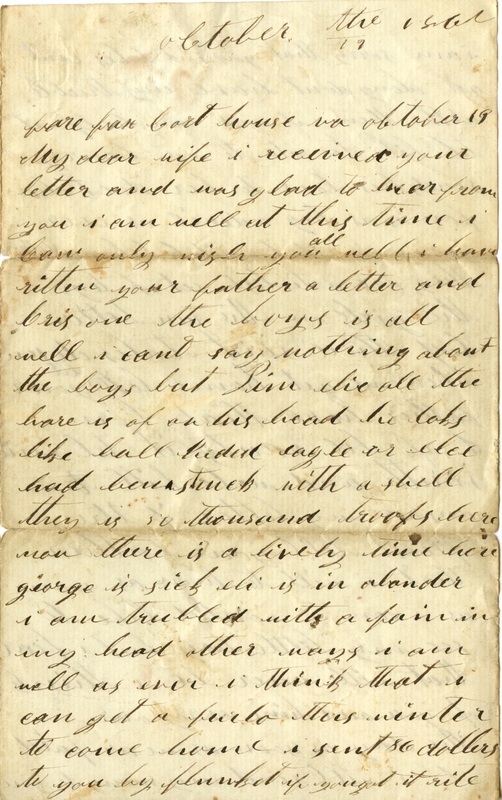 october the 19 1861
fare fax Cort house va october 19
My dear wife i received your
letter and was glad to hear from
you i am well at this time i
Can only wish you all well i have
ritten your father a letter and
Cris one the boys is all
well i cant say nothing about
the boys but Jim elic all the
hare is of on his head he loks
like ball heded eagle or elce
had ben struck with a shell
they is 50 thousand troops here
now there is a lively time here
george is sick eli is in
i am trubled with a pain in
my head other ways i am
well as ever i think that i
can get a furlo this winter
to come home i sent 50 dollers
to you by if you got it rite